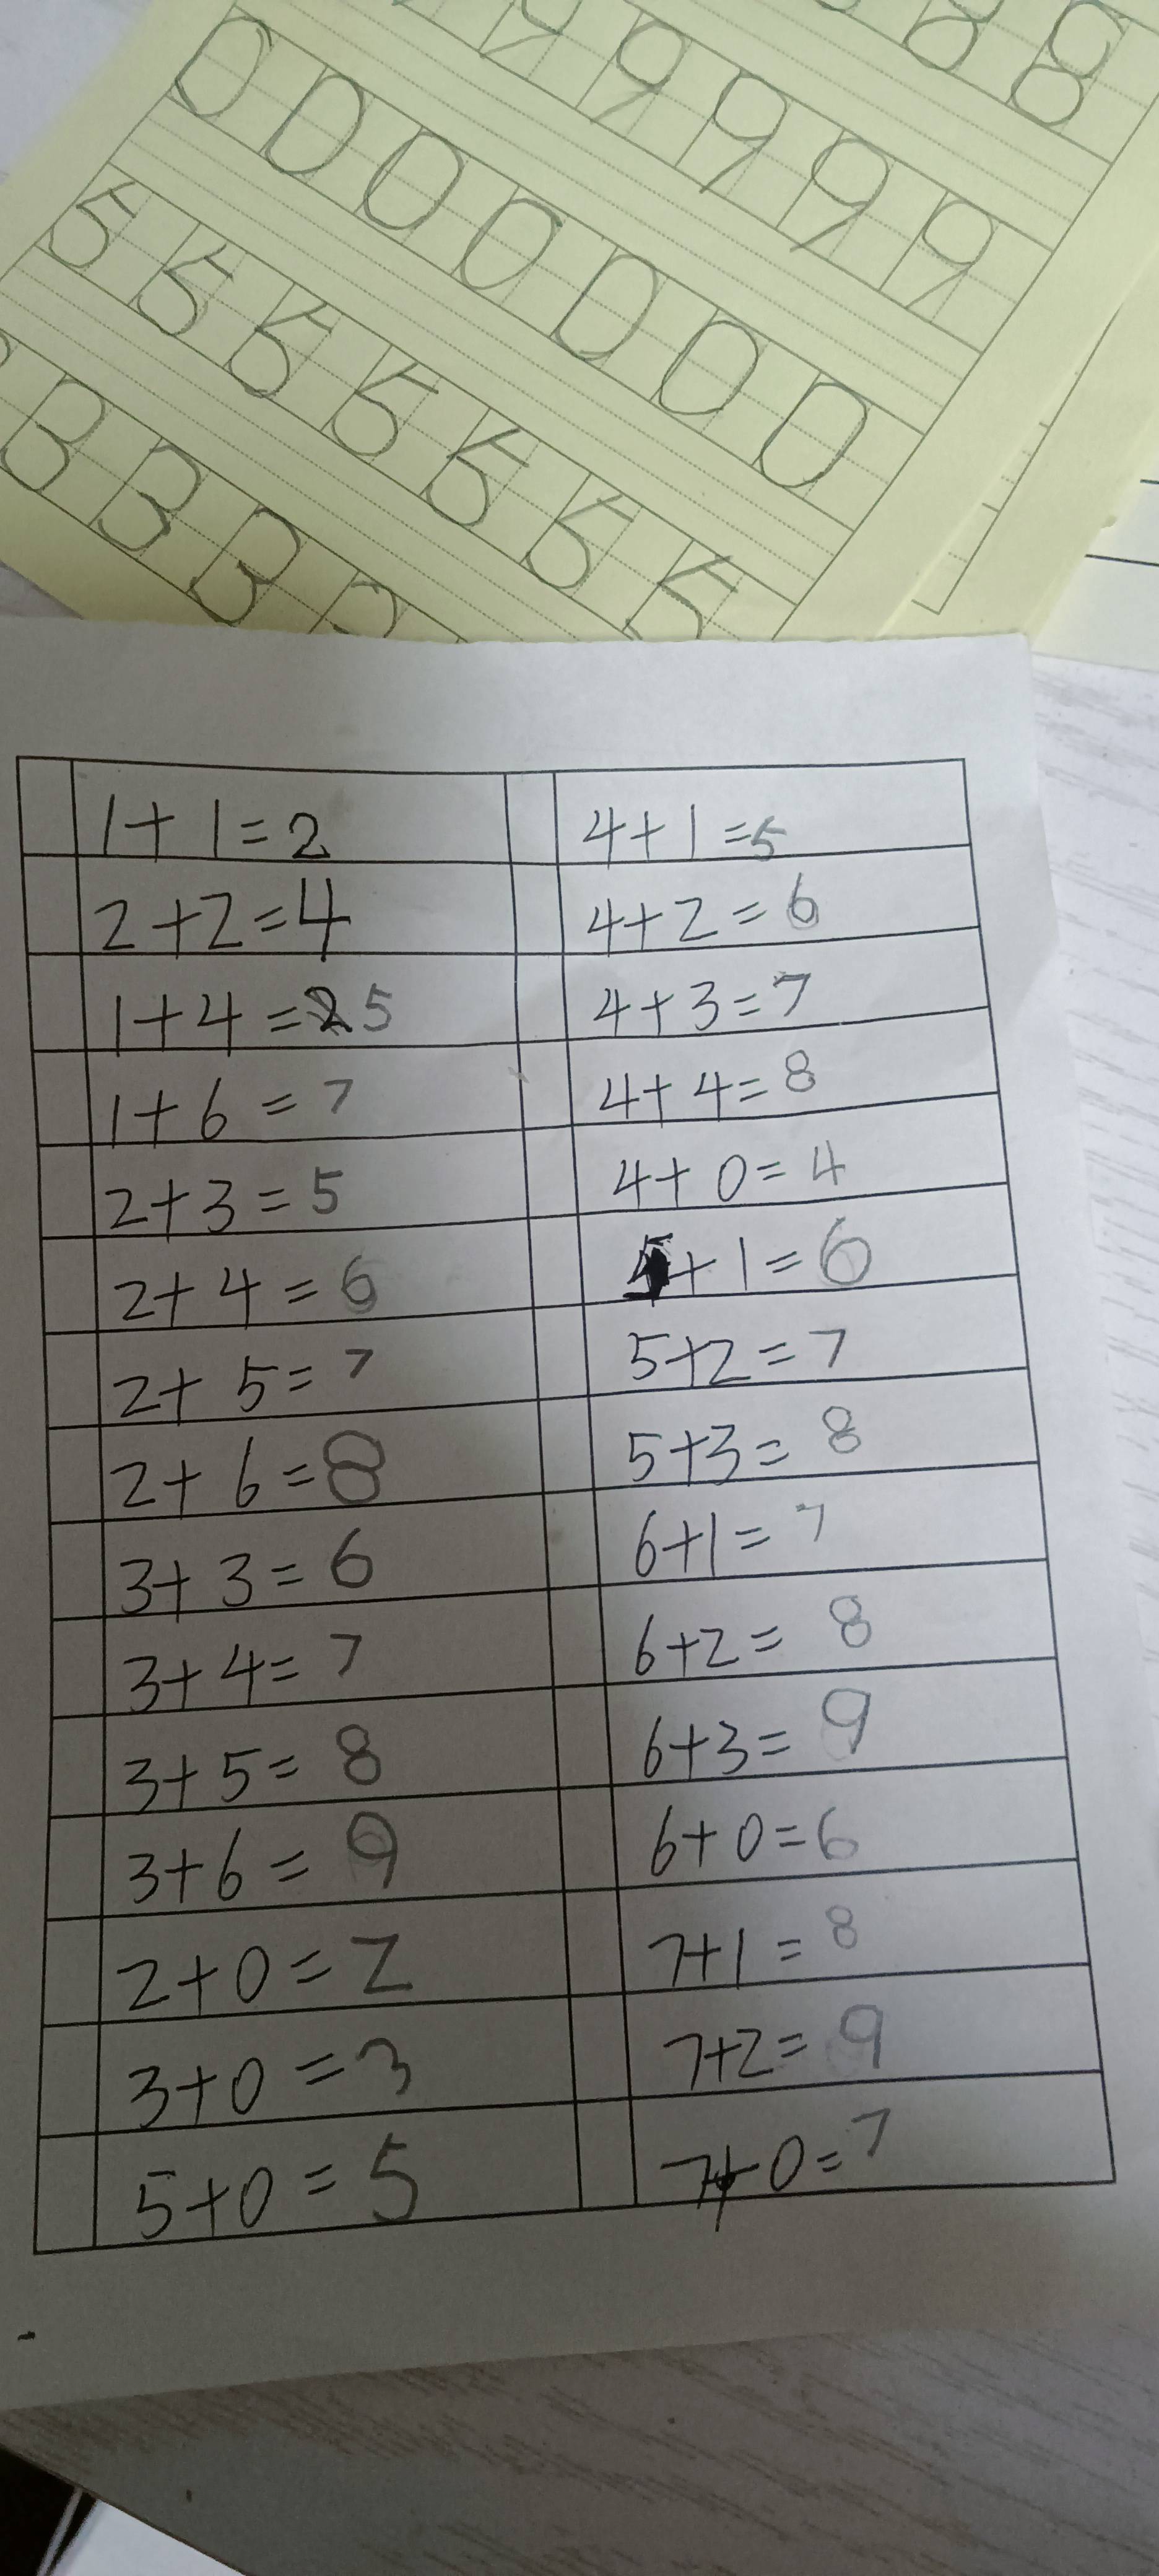 8 8
9 9 9 9 9
0 0 0 0 0 0 0
5 5 5 5 5 5 5
3 3 3
1+1=2 4+1=5
2+2=4 4+2=6
1+4=5 4+3=7
1+6=7 4+4=8
2+3=5 4+0=4
2+4=6 5+1=6
2+5=7 5+2=7
2+6=8 5+3=8
3+3=6 6+1=7
3+4=7 6+2=8
3+5=8 6+3=9
3+6=9 6+0=6
2+0=2 7+1=8
3+0=3 7+2=9
5+0=5 7+0=7